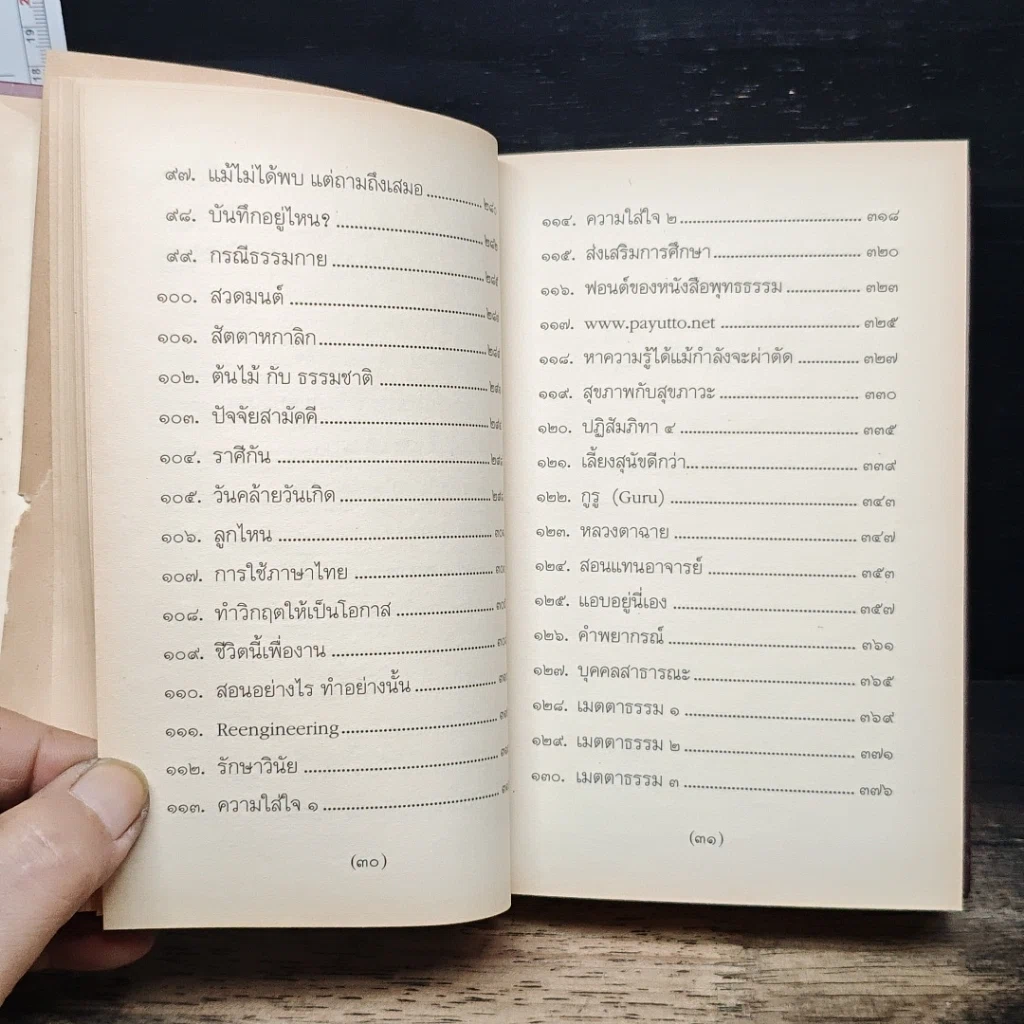 ๙๗. แม้ไม่ได้พบ แต่ถามถึงเสมอ
๙๘. บันทึกอยู่ไหน?
๙๙. กรณีธรรมกาย
๑๐๐. สวดมนต์
๑๐๑. สัตตาหกาลิก
๑๐๒. ต้นไม้ กับ ธรรมชาติ
๑๐๓. ปัจจัยสามัคคี
๑๐๔. ราศีกัน
๑๐๕. วันคล้ายวันเกิด
๑๐๖. ลูกไหน
๑๐๗. การใช้ภาษาไทย
๑๐๘. ทำวิกฤตให้เป็นโอกาส
๑๐๙. ชีวิตนี้เพื่องาน
๑๑๐. สอนอย่างไร ทำอย่างนั้น
๑๑๑. Reengineering
๑๑๒. รักษาวินัย
๑๑๓. ความใส่ใจ ๑
(๓๐)
๑๑๔. ความใส่ใจ ๒ ๓๑๘
๑๑๕. ส่งเสริมการศึกษา ๓๒๐
๑๑๖. ฟอนต์ของหนังสือพุทธธรรม ๓๒๓
๑๑๗. www.payutto.net ๓๒๕
๑๑๘. หาความรู้ได้แม้กำลังจะผ่าตัด ๓๒๗
๑๑๙. สุขภาพกับสุขภาวะ ๓๓๐
๑๒๐. ปฏิสัมภิทา ๔ ๓๓๕
๑๒๑. เลี้ยงสุนัขดีกว่า... ๓๓๙
๑๒๒. กูรู (Guru) ๓๔๓
๑๒๓. หลวงตาฉาย ๓๔๗
๑๒๔. สอนแทนอาจารย์ ๓๕๓
๑๒๕. แอบอยู่นี่เอง ๓๕๗
๑๒๖. คำพยากรณ์ ๓๖๑
๑๒๗. บุคคลสาธารณะ ๓๖๕
๑๒๘. เมตตาธรรม ๑ ๓๖๙
๑๒๙. เมตตาธรรม ๒ ๓๗๑
๑๓๐. เมตตาธรรม ๓ ๓๗๖
(๓๑)